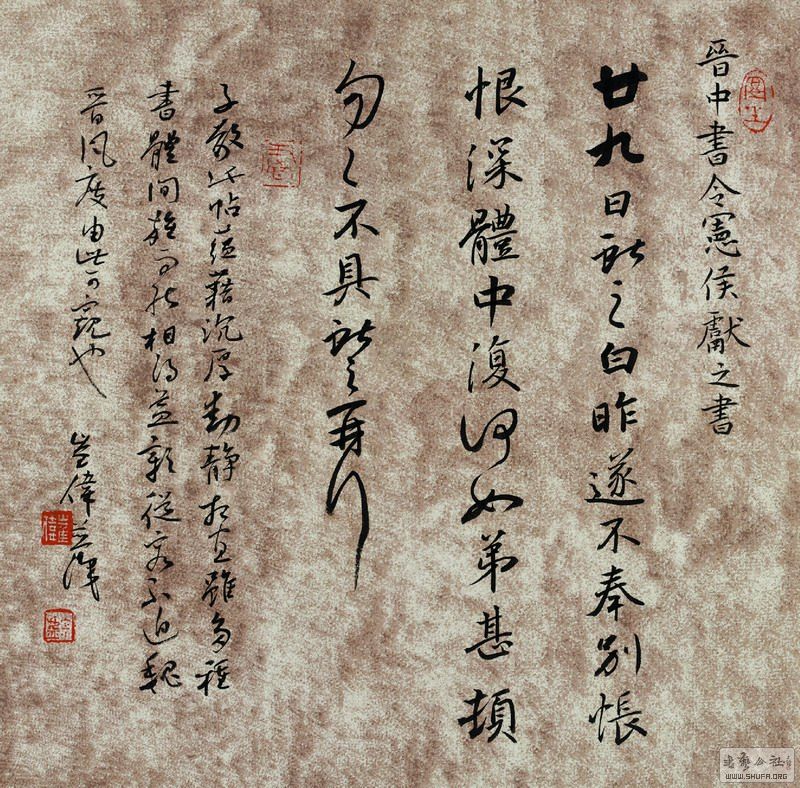 晉中書令憲侯獻之書
廿九日獻之白昨遂不奉別悵
恨深體中復何如弟甚頓
勿々不具獻之再拜
子敬此帖蘊藉沉厚動靜相宜雖多種
書體間雜而能相得益彰從容不迫魏
晉風度由此可窺也
崔偉並識
書藝公社
WWW.SHUFA.ORG